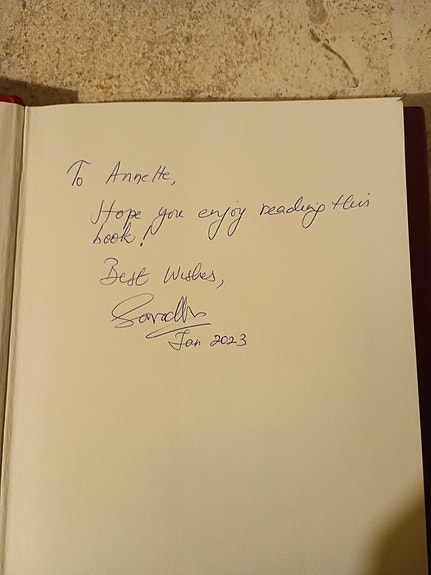 To Annette,
Hope you enjoy reading this
book!
Best Wishes,
Jan 2023